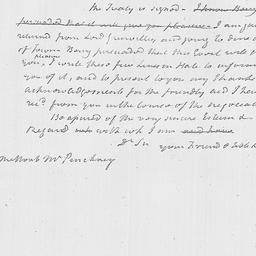 The Treaty is signed — I have Being
persuaded that it will give you pleasure — I am just
returned from Lord Grenville, and going to dine out
of Town. Being persuaded that this Event will give
you pleasure, I write these few Lines in Haste to inform
you of it; and to present to you my Thanks &
acknowledgements for the friendly aid I have
recd. from you in the course of the negociation
Be assured of the very sincere Esteem &
Regard with wh. I am
Dr Sir your Friend &
The Honb. Mr Pinckney